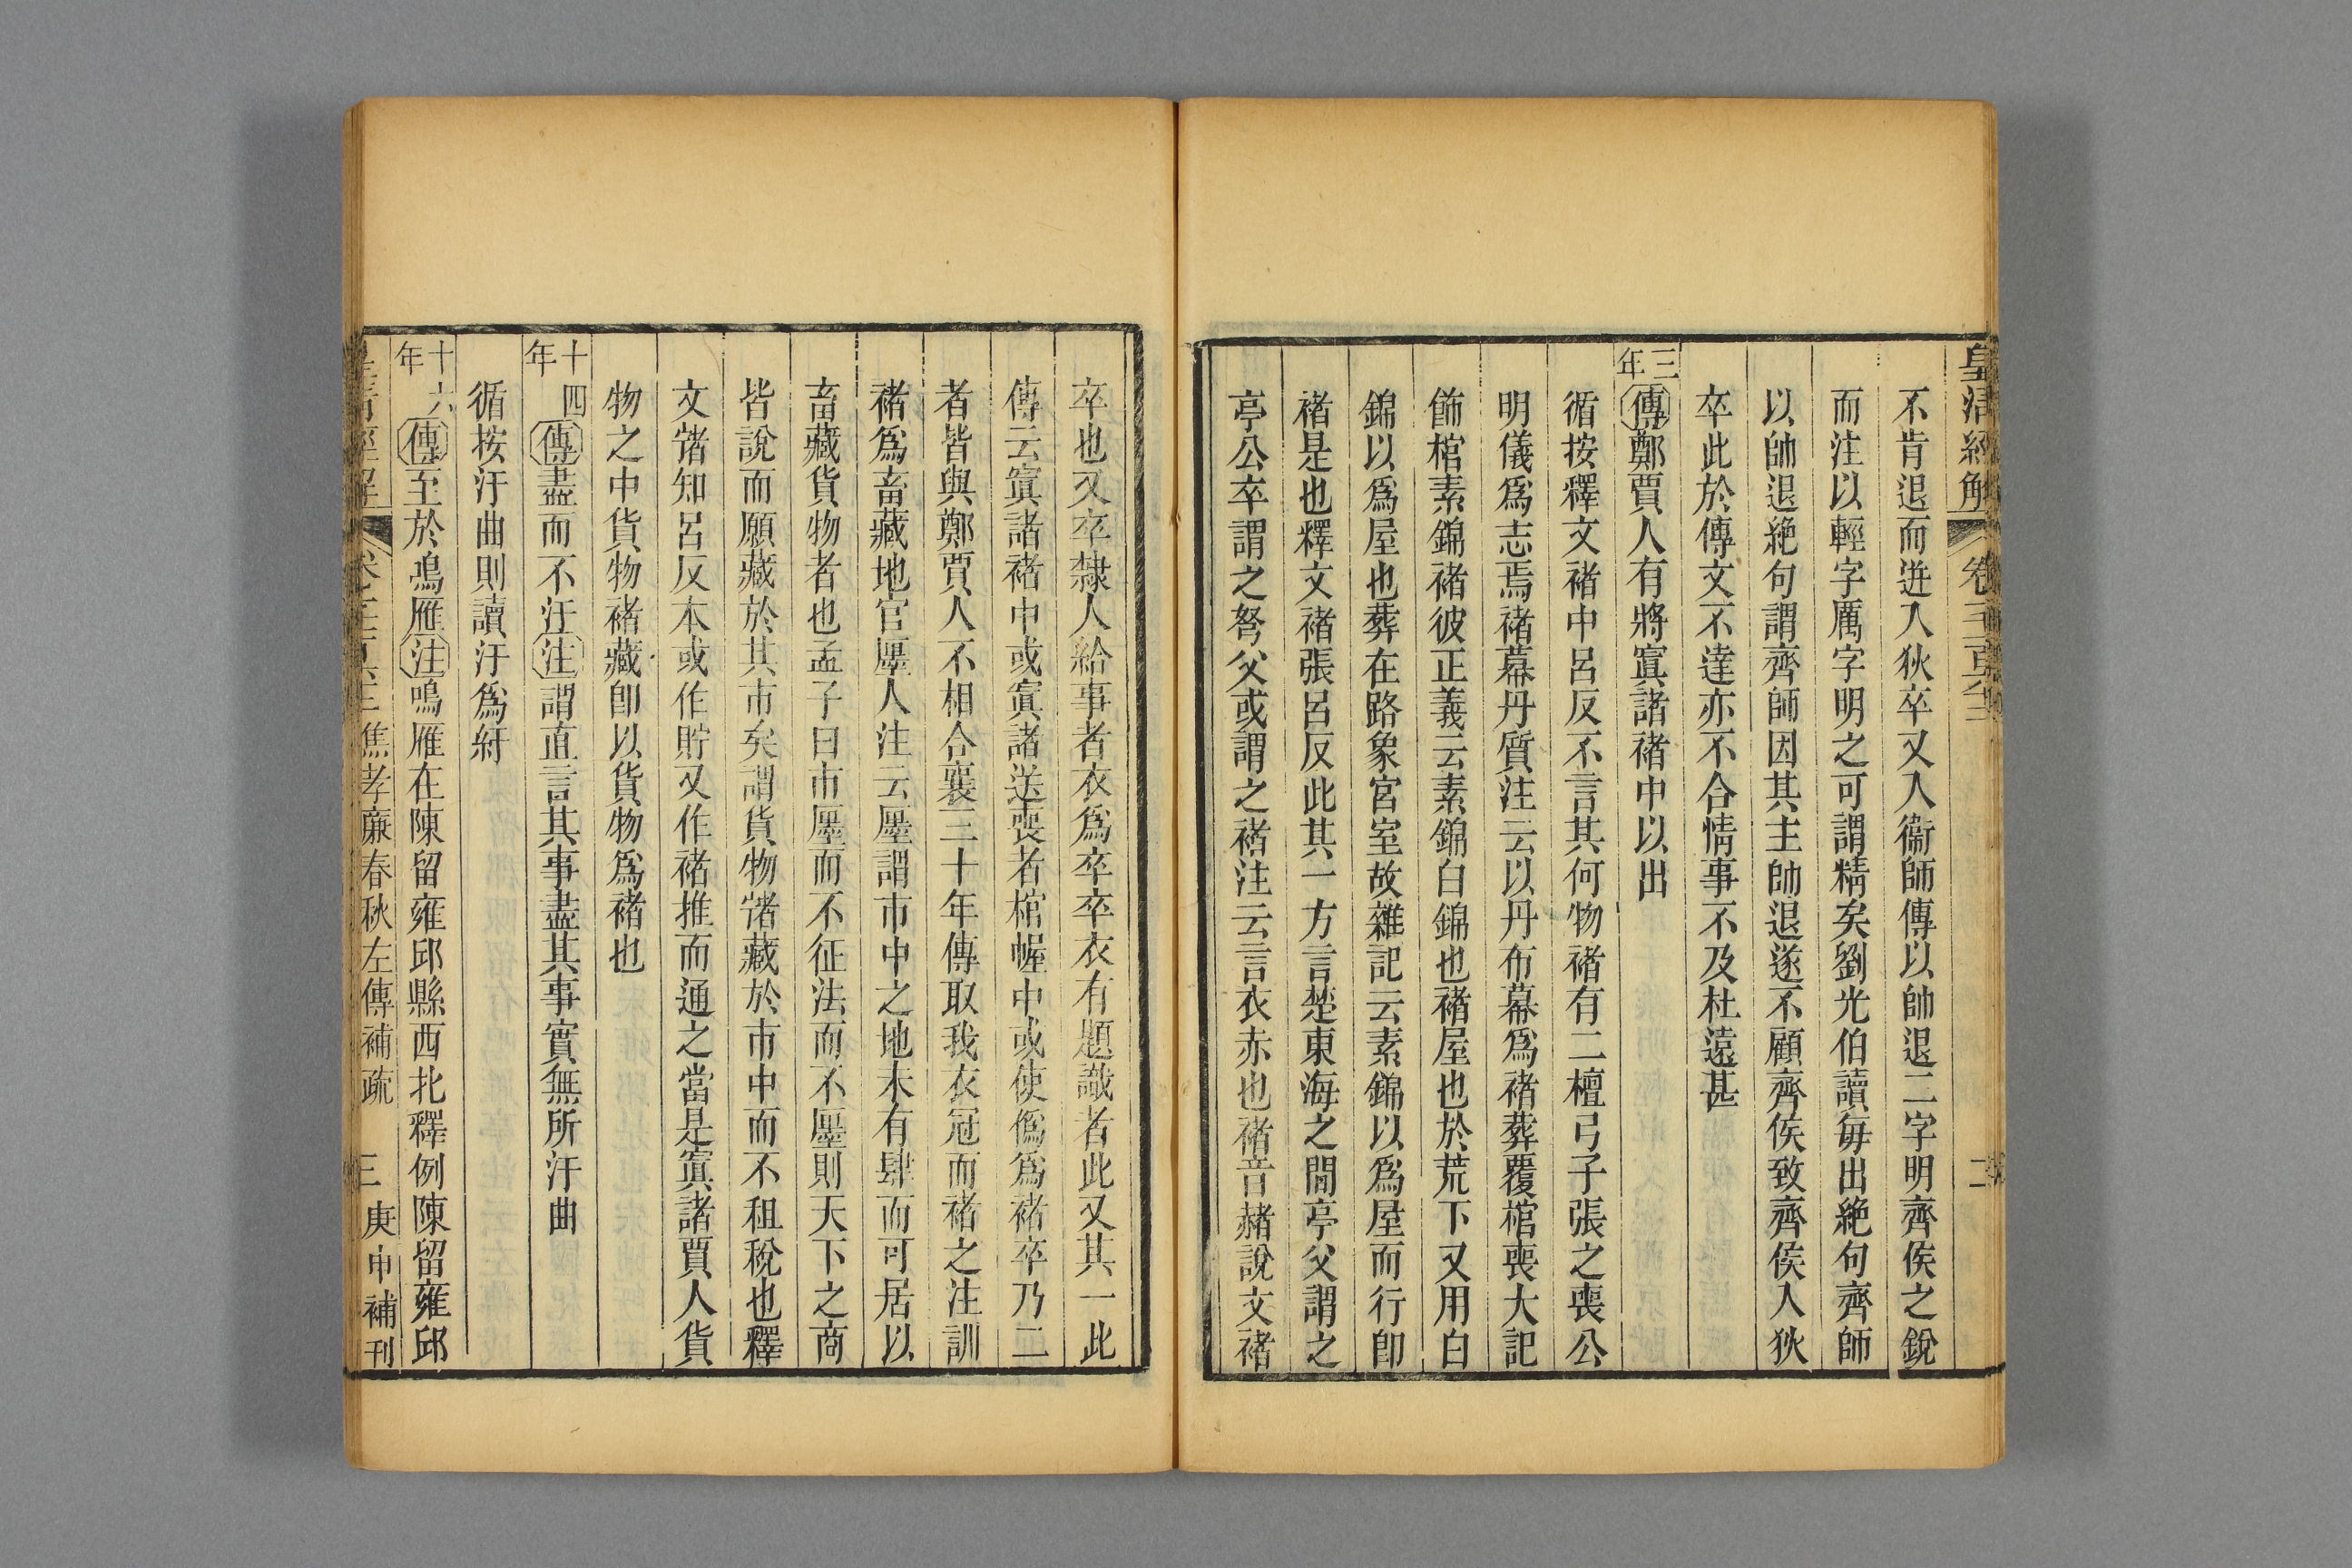 皇清經解
卷一千一百六十三
二
不肯退而迸入狄卒又入衞師傳以帥退二字明齊侯之銳
而注以輕字厲字明之可謂精矣劉光伯讀每出絶句齊師
以帥退絶句謂齊師因其主帥退遂不顧齊侯致齊侯入狄
卒此於傳文不達亦不合情事不及杜遠甚
三年傳鄭賈人有將寘諸褚中以出
循按釋文褚中呂反不言其何物褚有二檀弓子張之喪公
明儀爲志焉褚幕丹質注云以丹布幕爲褚葬覆棺喪大記
飾棺素錦褚彼正義云素錦白錦也褚屋也於荒下又用白
錦以爲屋也葬在路象宮室故雜記云素錦以爲屋而行卽
褚是也釋文褚張呂反此其一方言楚東海之間亭父謂之
亭公卒謂之弩父或謂之褚注云言衣赤也褚音赭說文褚
卒也又卒隸人給事者衣爲卒卒衣有題識者此又其一此
傳云寘諸褚中或寘諸送喪者棺幄中或使僞爲褚卒乃二
者皆與鄭賈人不相合襄三十年傳取我衣冠而褚之注訓
褚爲畜藏地官廛人注云廛謂市中之地未有肆而可居以
畜藏貨物者也孟子曰市廛而不征法而不廛則天下之商
皆說而願藏於其市矣謂貨物㣥藏於市中而不租稅也釋
文㣥知呂反本或作貯又作褚推而通之當是寘諸賈人貨
物之中貨物褚藏卽以貨物爲褚也
十四年傳盡而不汙注謂直言其事盡其事實無所汙曲
循按汙曲則讀汙爲紆
十六年傳至於鳴雁注鳴雁在陳留雍邱縣西北釋例陳留雍邱
焦孝廉春秋左傳補疏
三
庚申補刊